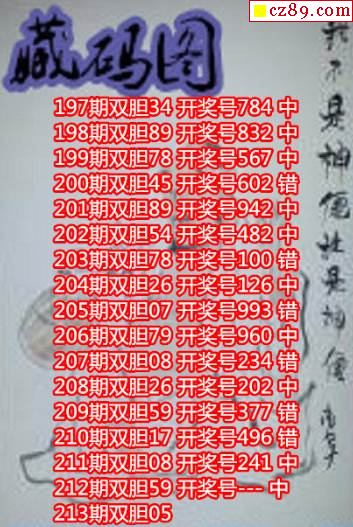 cz89.com
藏码图
197期双胆34 开奖号784 中
198期双胆89 开奖号832 中
199期双胆78 开奖号567 中
200期双胆45 开奖号602 错
201期双胆89 开奖号942 中
202期双胆54 开奖号482 中
203期双胆78 开奖号100 错
204期双胆26 开奖号126 中
205期双胆07 开奖号993 错
206期双胆79 开奖号960 中
207期双胆08 开奖号234 错
208期双胆26 开奖号202 中
209期双胆59 开奖号377 错
210期双胆17 开奖号496 错
211期双胆08 开奖号241 中
212期双胆59 开奖号--- 中
213期双胆05
我不是神仙谁是神仙